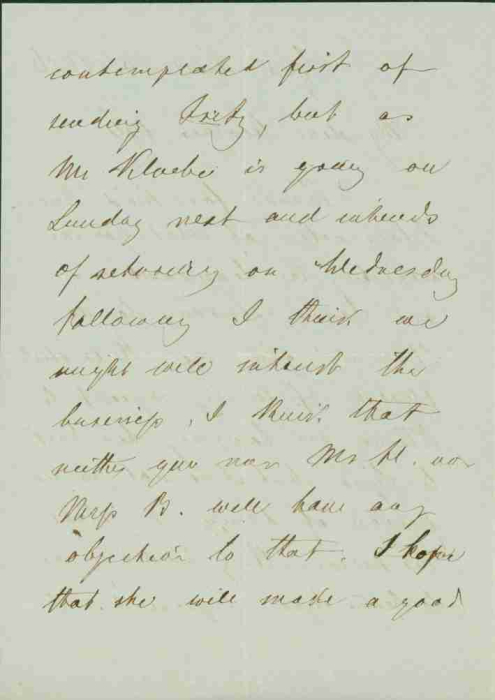 contemplated first of
sending Fritz, but as
Mr Klaebe is going on
Sunday next and intends
of returning on Wednesday
following I think we
might well intrust the
business, I think that
neither you nor Mr H. nor
Miss B. will have any
objection to that. I hope
that she will make a good